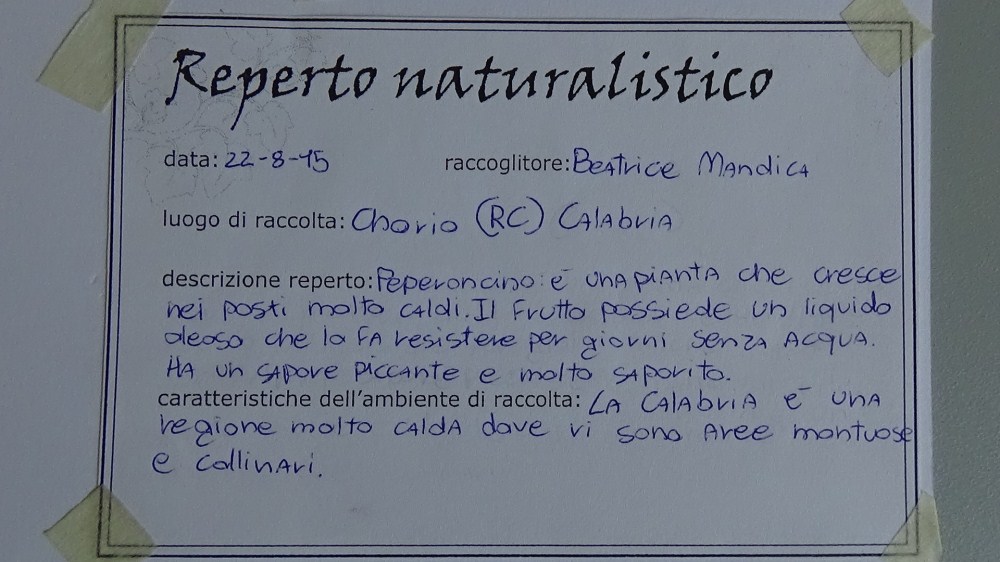 Reperto naturalistico
data: 22-8-15 raccoglitore: Beatrice Mandica
luogo di raccolta: Chorio (RC) Calabria
descrizione reperto: Peperoncino: è una pianta che cresce
nei posti molto caldi. Il frutto possiede un liquido
oleoso che la fa resistere per giorni senza acqua.
Ha un sapore piccante e molto saporito.
caratteristiche dell'ambiente di raccolta: La Calabria è una
regione molto calda dove vi sono aree montuose
e collinari.